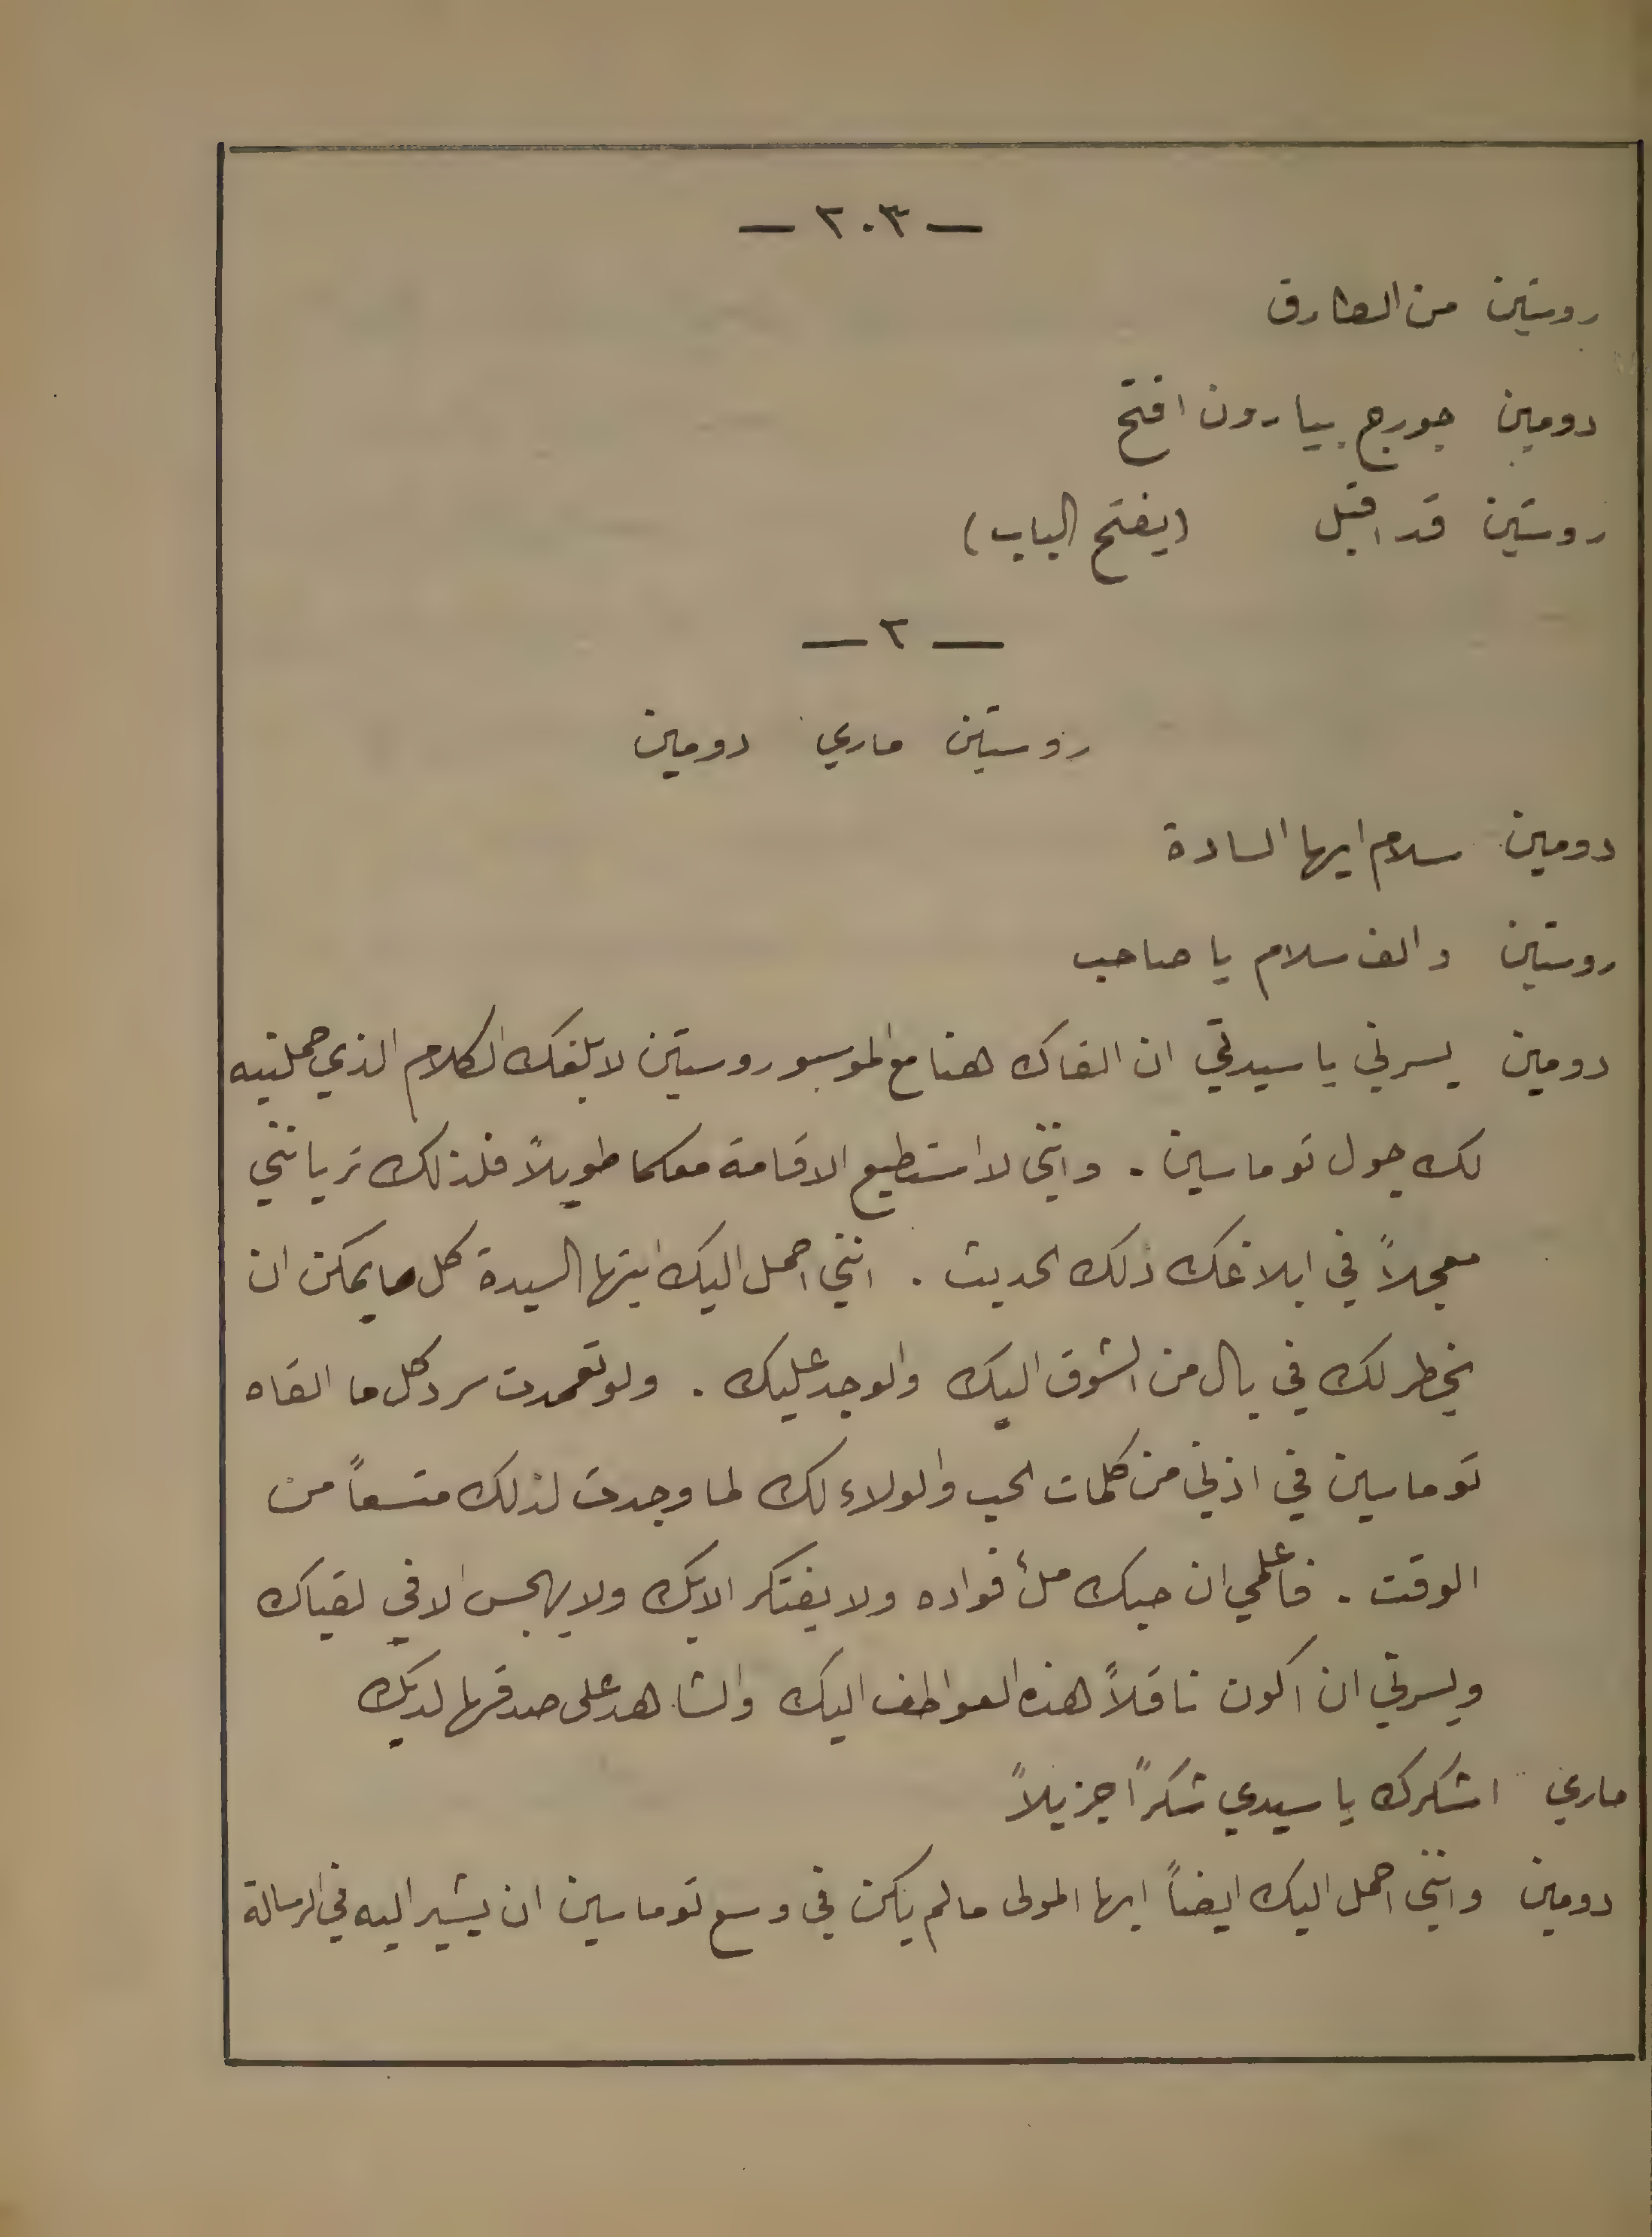 — ٢٠٣ —
روستين من الطارق
دومين جورج بيارون افتح
روستين قد اقبل (يفتح الباب)
— ٢ —
روستين ماري دومين
دومين سلام ايها السادة
روستين والف سلام يا صاحب
دومين يسرني يا سيدتي ان القاك هنا مع الموسيو روستين لابلغك الكلام الذي حملنيه
لك جول توماسين . وانني لا استطيع الاقامة معكما طويلاً فلذلك تريانني
معجلاً في ابلاغك ذلك الحديث . انني احمل اليك ايتها السيدة كل ما يمكن ان
يخطر لك في بال من الشوق اليك والوجد عليك . ولو تعمدت سرد كل ما القاه
توماسين في اذني من كلمات الحب والولاء لك لما وجدت لذلك متسعاً من
الوقت . فاعلمي ان حبك ملأ فواده ولا يفتكر الا بك ولا يهجس الا في لقياك
ويسرني ان اكون ناقلاً هذه العواطف اليك والشاهد على صدقها لديك
ماري اشكرك يا سيدي شكراً جزيلاً
دومين وانني احمل اليك ايضاً ايها المولى ما لم يكن في وسع توماسين ان يشير اليه في الرسالة